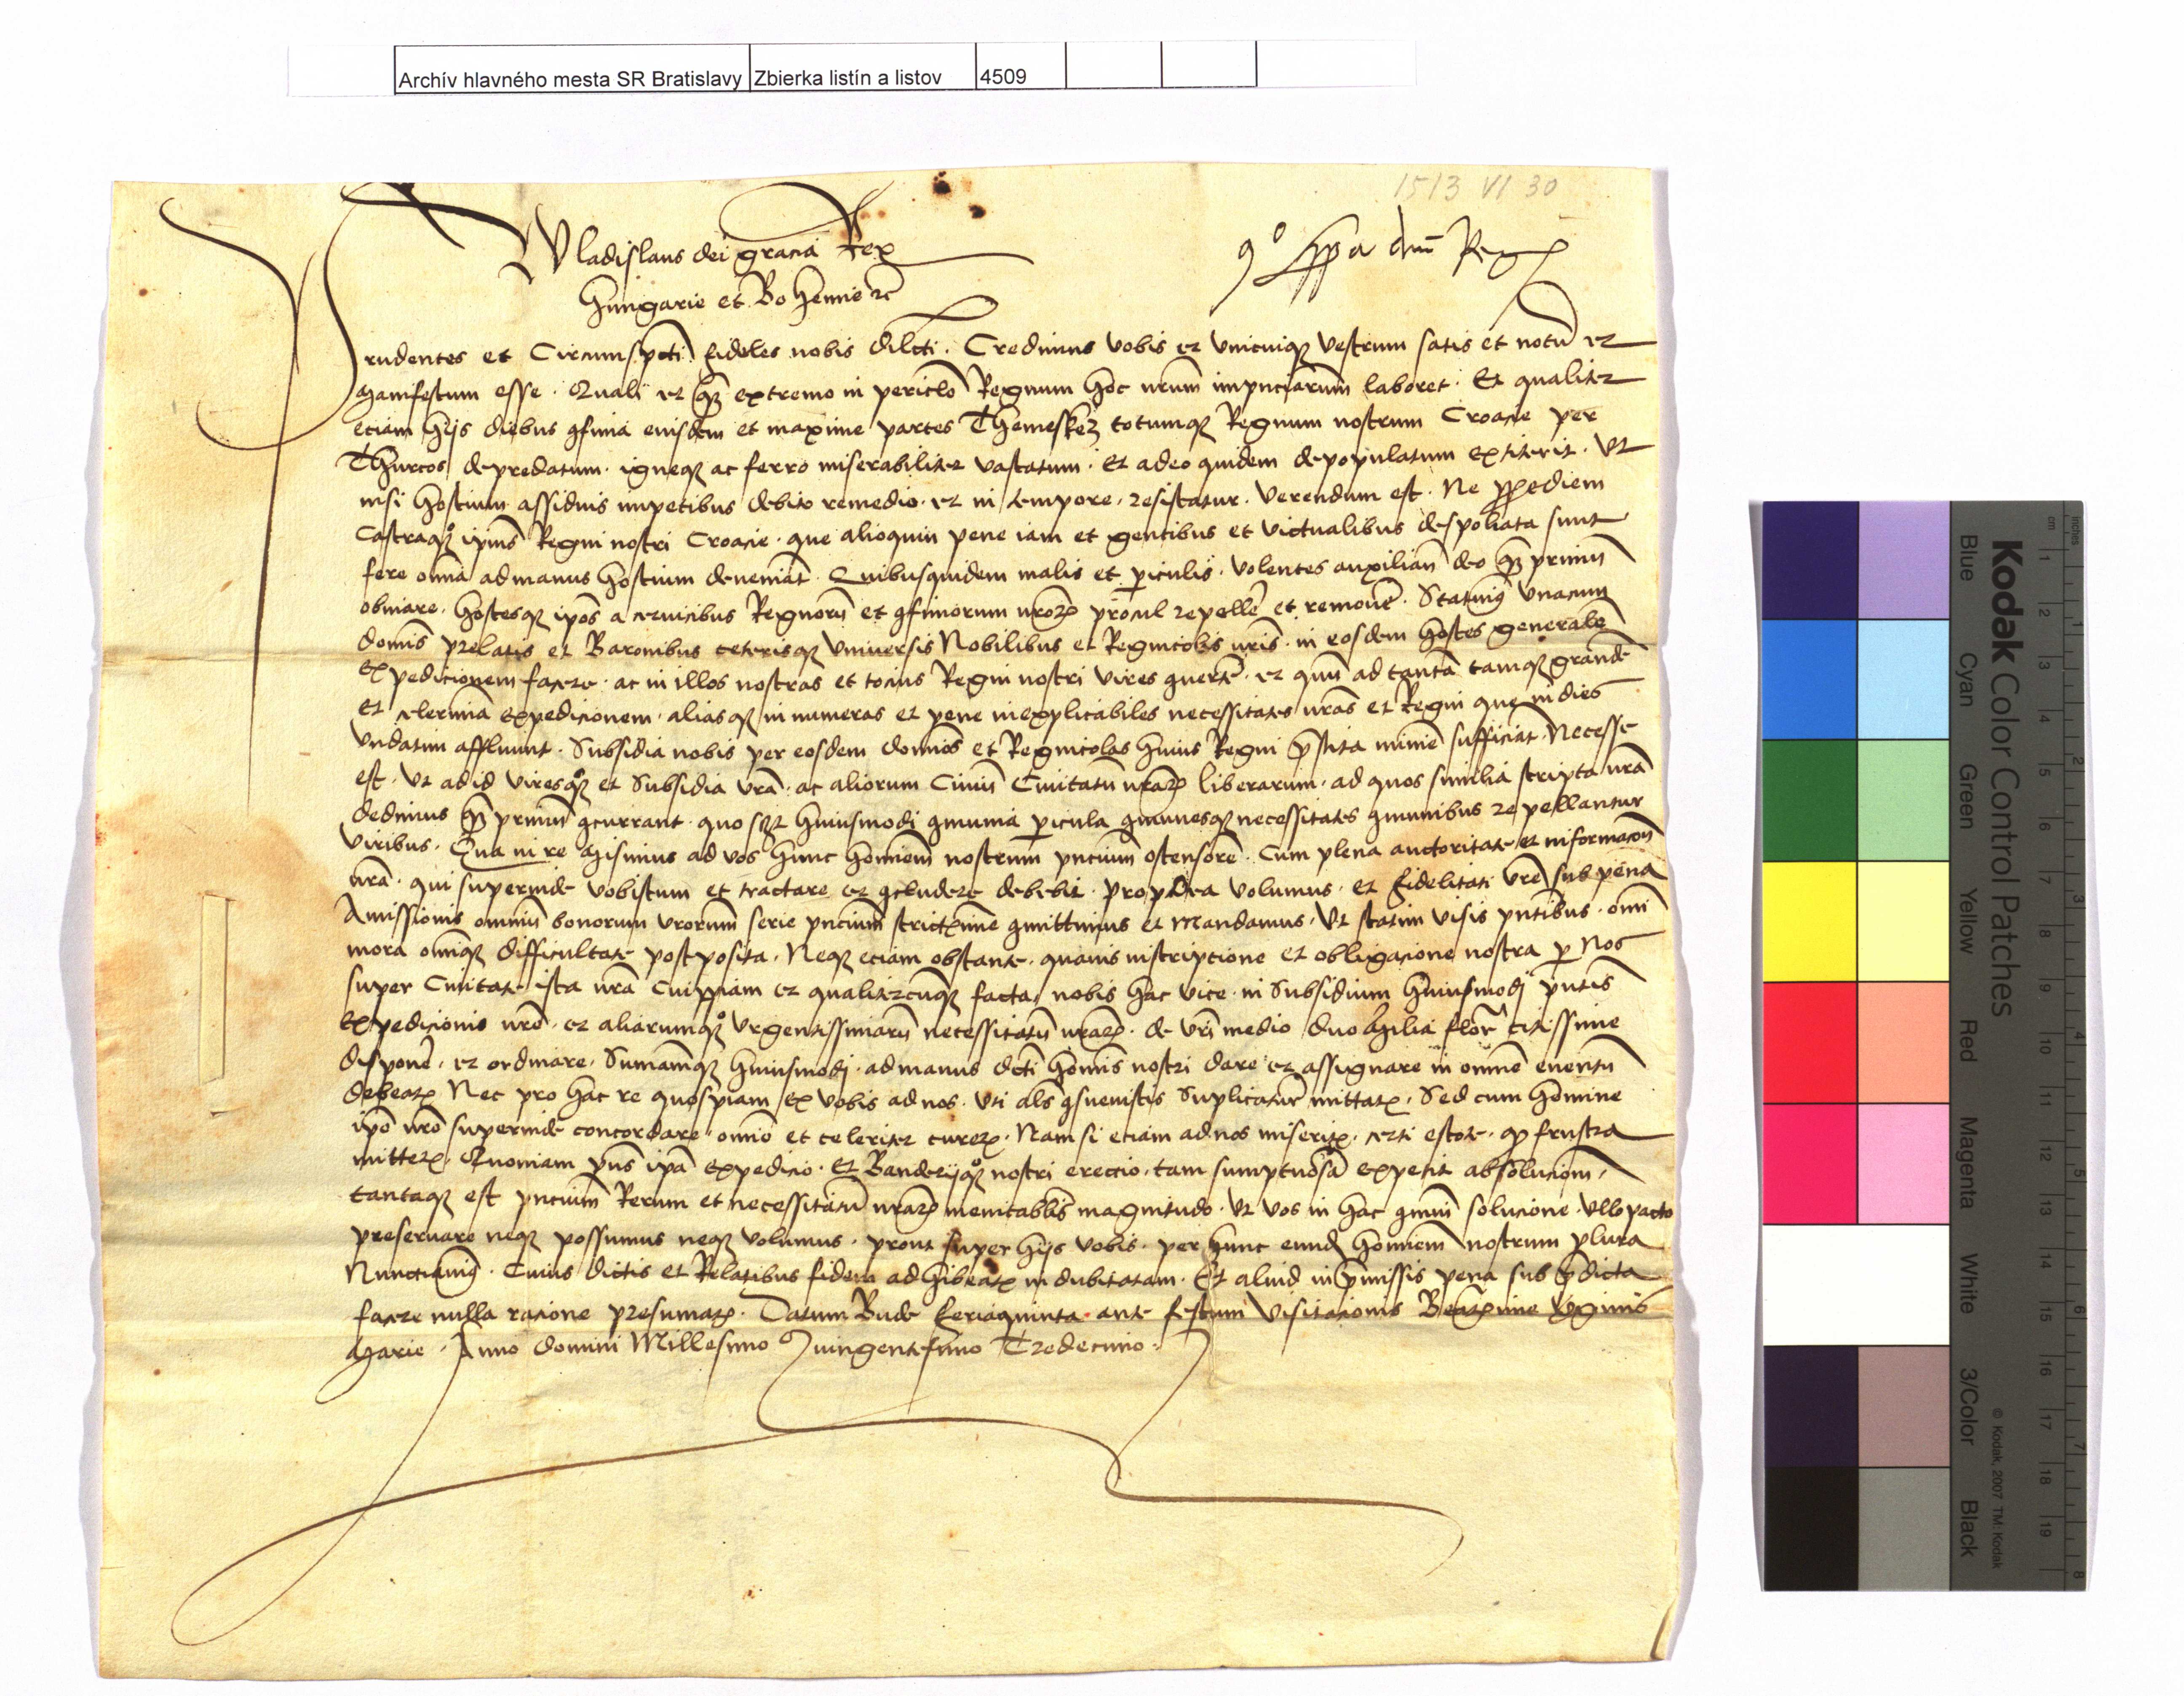 Archív hlavného mesta SR Bratislavy Zbierka listín a listov 4509
1513 VI 30
Wladislaus dei gracia Rex
Hungarie et Bohemie etc
Prudentes et Circumspcti fideles nobis dilcti. Credimus vobis et vnicuiqz vestrum satis et notū et
Manifestum esse. Quali et qz extremo in periclo Regnum hoc nrum impnciarum laboret. Et qualiter
eciam hijs diebus 9finia eiusdem et maxime partes Themeskez totumqz Regnum nostrum Croacie per
Thurcos depredatum. igneqz ac ferro miserabiliter vastatum. Et adeo quidem depopulatum extiterit. Vt
nisi hostium assiduis impetibus debito remedio. et in tempore. resistatur. Verendum est. Ne propediem
Castraqz ipius Regni nostri Croacie. que alioquin pene iam et gentibus et victualibus despoliata sunt
fere omia ad manus hostium deueniāt. Quibusquidem malis et piculis. Volentes auxiliāte deo qz primū
obuiare. hostesqz ipos a ceruicibus Regnorū et 9finiorum nrorz procul repellē et remouē. Statuimus vnacum
domis prelatis et Baronibus ceterisqz Vniuersis Nobilibus et Regnicolis nris. in eosdem hostes generalē
Expedicionem facere. ac in illos nostras et tocius Regni nostri Vires 9uerte. et quū ad tantā tamqz grandē
et celerimā expedicionem. aliasqz innumeras et pene inexplicabiles necessitates nras et Regni que in dies
Vndatim affluunt. Subsidia nobis per eosdem domios et Regnicolas huius Regni pstita minie sufficiāt. Necesse
est. Vt ad id viresqz et Subsidia vrā. ac aliorum Ciuiū Ciuitatū nrarz liberarum. ad quos similia scripta nrā
dedimus qz primū 9currant. quo sicut huiusmodi 9munia picula 9munesqz necessitates 9munibus repellantur
viribus. Qua in re Misimus ad vos hunc hoiem nostrum pncium ostensorē. Cum plena auctoritate et informacōe
nrā. qui superinde vobiscum et tractare et 9cludere debebit. Propterea volumus. et fidelitati vre sub pena
Amissionis omniū bonorum vrorum serie pncium strictxime 9mittimus et Mandamus. Vt statim visis pntibus. omi
mora omiqz difficultate postposita. Neqz eciam obstante. quauis inscripcione et obligacione nostra p Nos
super Ciuitate ista nrā Cuipiam et qualitercūqz facta. nobis hac vice. in Subsidium huiusmodi pntis
Expedicionis nre. et aliarumqz vrgentissimarū necessitatū nrarz. de vri medio duo Milia florz citissime
disponē. et ordinare. Sumamqz huiusmodi. ad manus dcti hois nostri dare et assignare in omē euentū
debeatz Nec pro hac re quospiam ex vobis ad nos. vti als 9sueuistis Suplicatū mittatz. Sed cum homine
ipo nro superinde concordare. omio et celeriter curetz. Nam si eciam ad nos miseritz. certi estote. qz frustra
mittetz. Quoniam pns ipa Expedicio. Et Banderijqz nostri ereccio. tam sumptuosā expetit absolucionē.
tantaqz est pncium Rerum et necessitatū nrarz ineuitabilis magnitudo. Vt vos in hac 9muni solucione. Vllo pacto
preseruare neqz possumus neqz volumus. prout super hijs vobis. per hunc eundē homiem nostrum plura
Nunctiauimus. Cuius dictis et Relatibus fidem adhibeatz indubitatam. Et aliud in pmissis pena sub pdicta
facere nulla racione presumatz. Datum Bude feriaquinta. ante festum Visitacionis Beatxime Virginis
Marie. Anno domini Millesimo Quingentesimo Tredecimo.
Kodak Color Control Patches
Blue Cyan Green Yellow Red Magenta White 3/Color Black
© Kodak, 2007 TM: Kodak
cm 1 2 3 4 5 6 7 8 9 10 11 12 13 14 15 16 17 18 19
inches 1 2 3 4 5 6 7 8